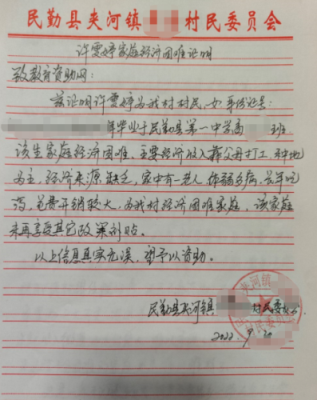 民勤县夹河镇 村民委员会
许雯婷家庭经济困难证明
致教育资助网：
兹证明许雯婷为我村村民，女，身份证号：
年毕业于民勤县第一中学高 班，
该生家庭经济困难，主要经济收入靠父母打工、种地
为主，经济来源缺乏，家中有一老人，体弱多病，长年吃
药，花费开销较大，为我村经济困难家庭，该家庭
未再享受其它政策补贴。
以上信息真实无误，望予以资助。
民勤县夹河镇 村民委
2022.